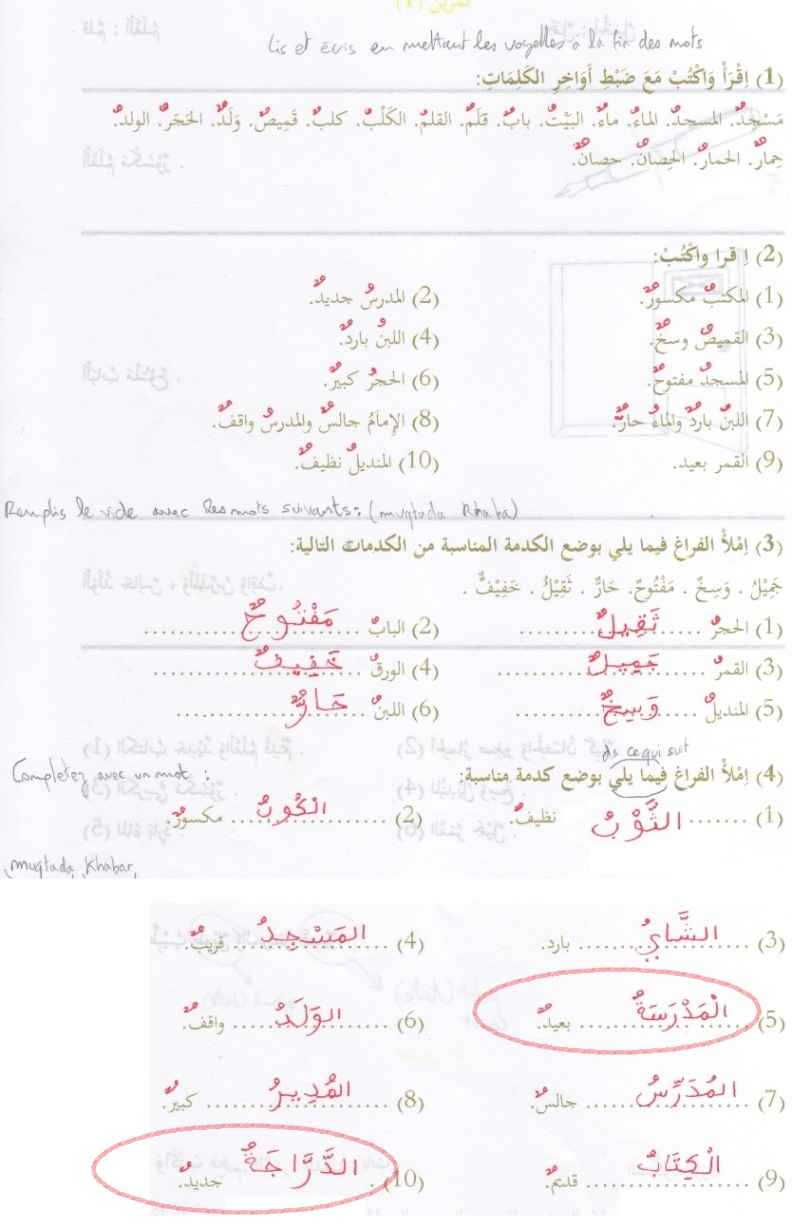 تمرين (١)
Lis et écris en mettant les voyelles à la fin des mots
(1) اِقْرَأْ وَاكْتُبْ مَعَ ضَبْطِ أَوَاخِرِ الكَلِمَاتِ:
مَسْجِدٌ. المسجدُ. الماءُ. ماءٌ. البَيْتُ. بابٌ. قلَمٌ. القلمُ. الكَلْبُ. كلبٌ. قَمِيصٌ. وَلَدٌ. الحَجَرُ. الولدُ.
حِمارٌ. الحمارُ. الحِصانُ. حصانٌ.
(2) اِقرا واكْتُبْ:
(1) المكتبُ مكسورٌ. (2) المدرسُ جديدٌ.
(3) القميصُ وسخٌ. (4) اللبنُ باردٌ.
(5) المسجدُ مفتوحٌ. (6) الحجرُ كبيرٌ.
(7) اللبنُ باردٌ والماءُ حارٌّ. (8) الإمامُ جالسٌ والمدرسُ واقفٌ.
(9) القمر بعيد. (10) المنديلُ نظيفٌ.
Remplis le vide avec les mots suivants: (muqtada Khaba)
(3) اِمْلأْ الفراغ فيما يلي بوضع الكدمة المناسبة من الكدمات التالية:
جَمِيْلُ . وَسِخٌ . مَفْتُوحٌ. حَارٌّ . ثَقِيْلٌ . خَفِيْفٌ .
(1) الحجرُ ..... ثَقِيلٌ ......... (2) البابُ ..... مَفْتُوحٌ .........
(3) القمرُ ..... جَمِيلٌ ......... (4) الورقُ ..... خَفِيفٌ .........
(5) المنديلُ ..... وَسِخٌ ......... (6) اللبنُ ..... حَارٌّ .........
ds ce qui suit
Completez avec un mot :
(4) اِمْلأْ الفراغ فيما يلي بوضع كدمة مناسبة:
(1) ....... الثَّوْبُ نظيفٌ. (2) ....... الْكُوبُ ..... مكسورٌ.
muqtada Khabar
(3) ....... الشَّايُ ....... بارد. (4) ....... المَسْجِدُ ..... قريبٌ.
(5) ....... الْمَدْرَسَةُ ....... بعيدٌ. (6) ....... الوَلَدُ ..... واقفٌ.
(7) ....... المُدَرِّسُ ...... جالسٌ. (8) ....... المُدِيرُ ..... كبيرٌ.
(9) ....... الْكِتَابُ ....... قديمٌ. (10) . الدَّرَّاجَةُ جديدٌ.